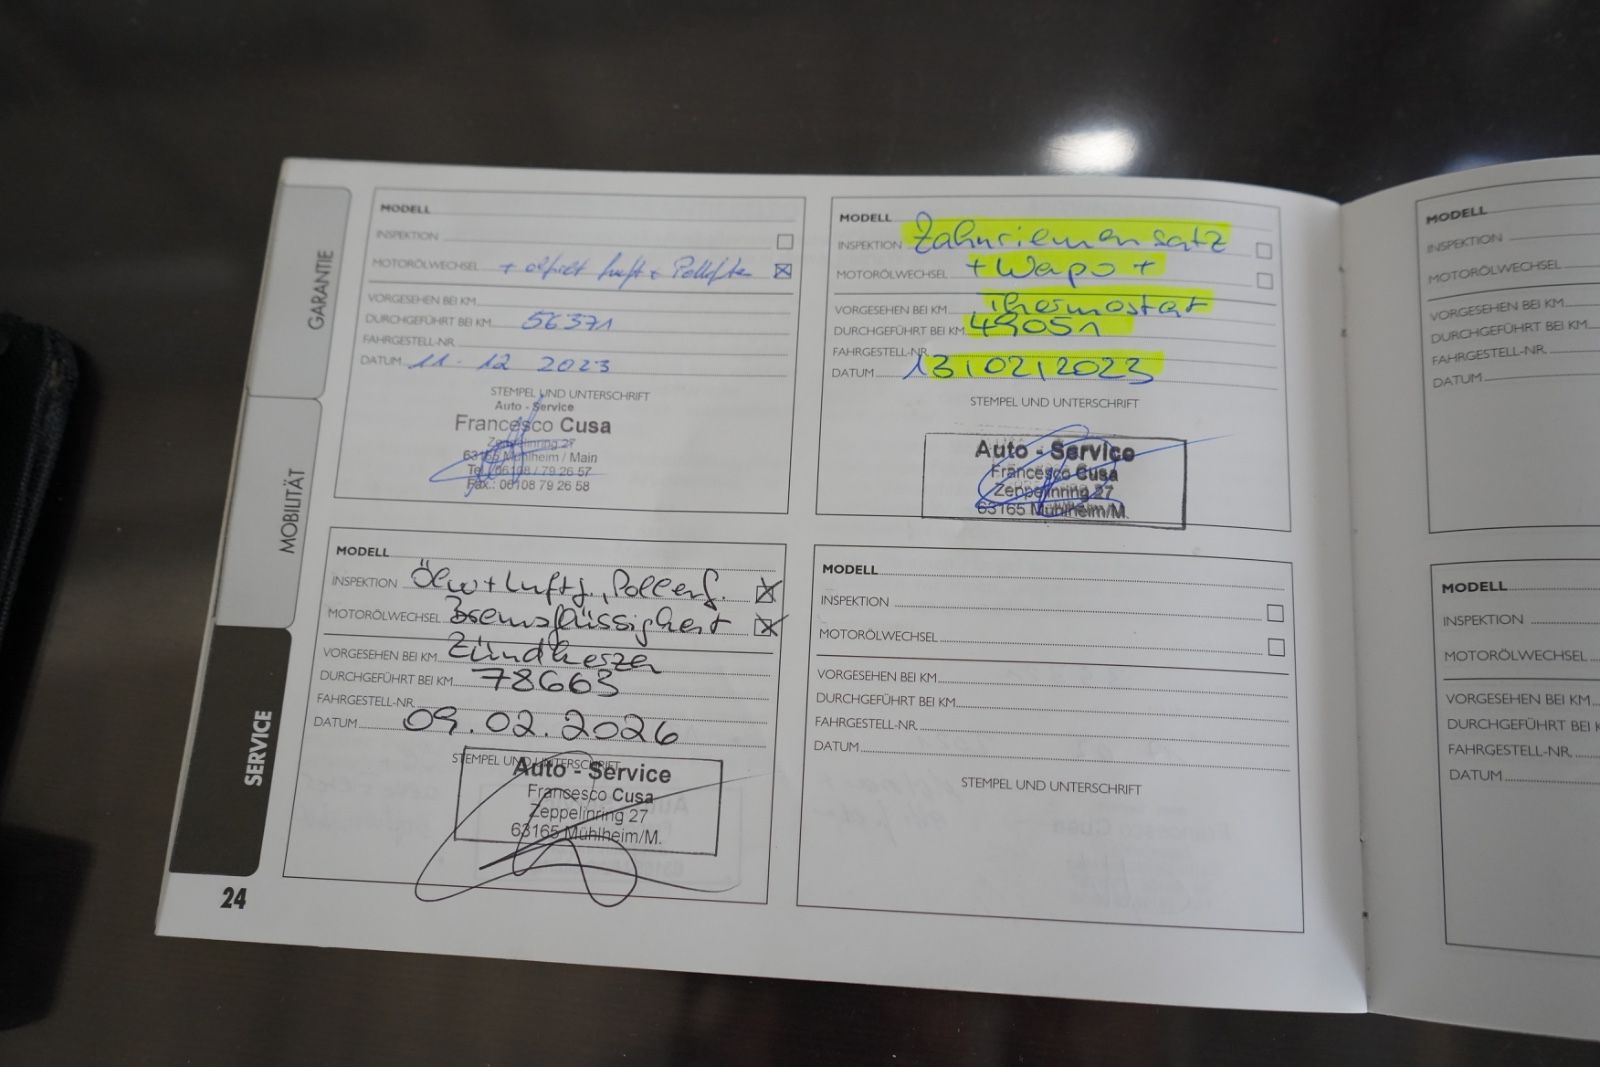 GARANTIE
MOBILITÄT
SERVICE
24
MODELL
INSPEKTION
MOTORÖLWECHSEL + ölfilt Luft +
VORGESEHEN BEI KM
DURCHGEFÜHRT BEI KM 56371
FAHRGESTELL-NR.
DATUM 11. 12 2023
STEMPEL UND UNTERSCHRIFT
Auto - Service
Francesco Cusa
Zeppelinring 27
63165 Mühlheim / Main
Tel. 06108 / 79 26 57
Fax.: 06108 79 26 58
MODELL
INSPEKTION Zahnriemen satz
MOTORÖLWECHSEL + Wapo +
VORGESEHEN BEI KM Thermostat
DURCHGEFÜHRT BEI KM 49051
FAHRGESTELL-NR.
DATUM 13/02/2023
STEMPEL UND UNTERSCHRIFT
Auto - Service
Francesco Cusa
Zeppelinring 27
63165 Mühlheim/M.
MODELL
INSPEKTION Ölw + Luftf., Pollenf.
MOTORÖLWECHSEL Bremsflüssigkeit
VORGESEHEN BEI KM Zündkerzen
DURCHGEFÜHRT BEI KM 78663
FAHRGESTELL-NR.
DATUM 09.02.2026
STEMPEL UND UNTERSCHRIFT
Auto - Service
Francesco Cusa
Zeppelinring 27
63165 Mühlheim/M.
MODELL
INSPEKTION
MOTORÖLWECHSEL
VORGESEHEN BEI KM
DURCHGEFÜHRT BEI KM
FAHRGESTELL-NR.
DATUM
STEMPEL UND UNTERSCHRIFT
MODELL
INSPEKTION
MOTORÖLWECHSEL
VORGESEHEN BEI KM
DURCHGEFÜHRT BEI KM
FAHRGESTELL-NR.
DATUM
MODELL
INSPEKTION
MOTORÖLWECHSEL
VORGESEHEN BEI KM
DURCHGEFÜHRT BEI K
FAHRGESTELL-NR.
DATUM